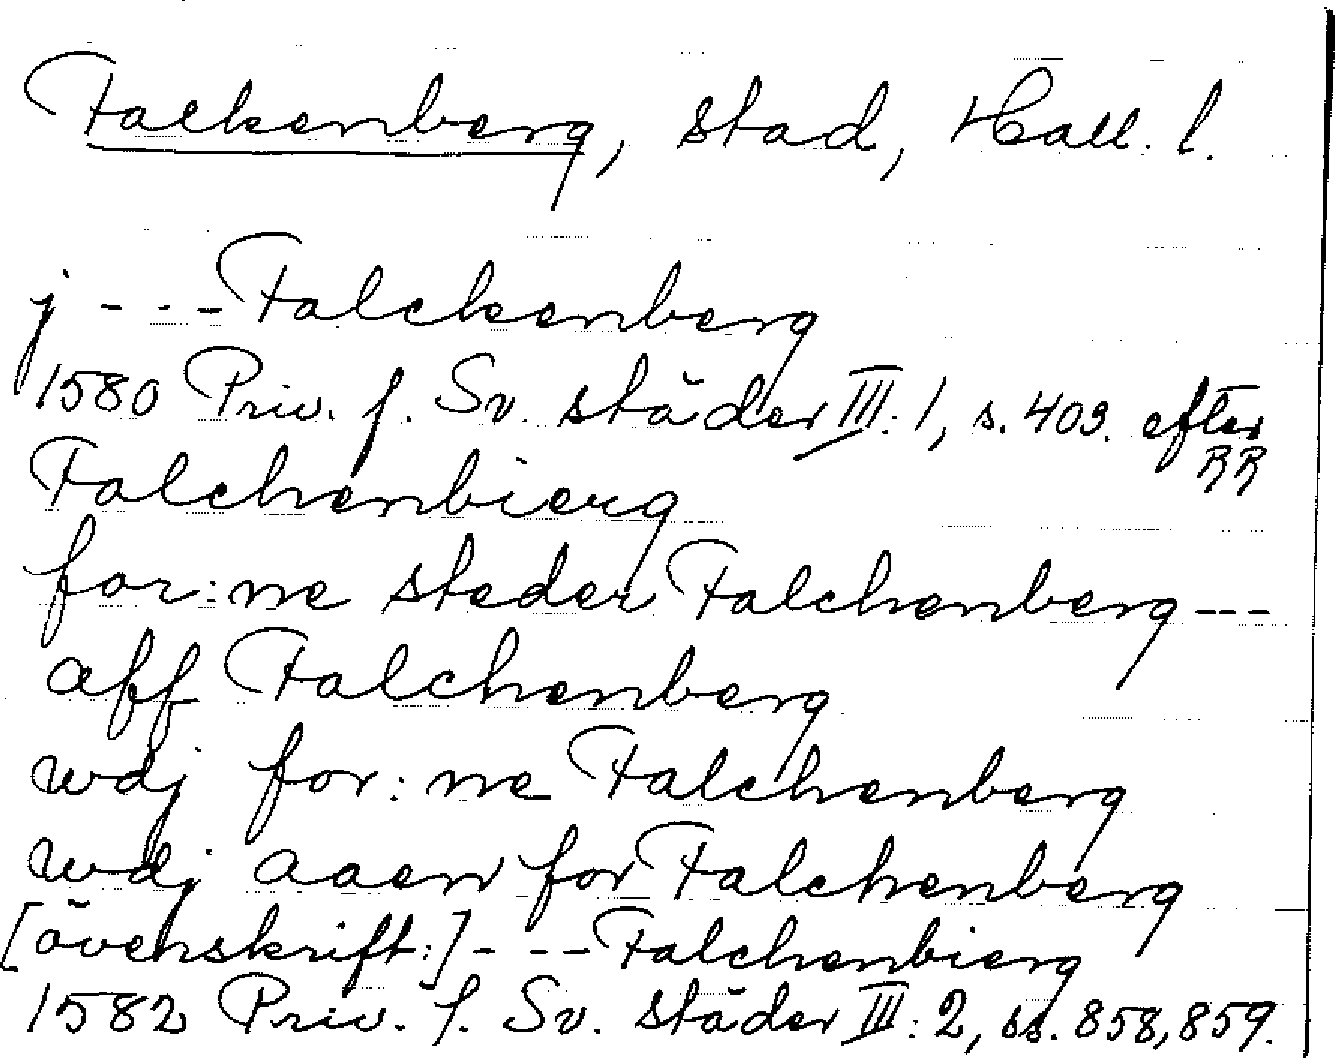 Falkenberg, stad, Hall. l.
j --- Falckenberg
1580 Priv. f. Sv. städer III:1, s. 403. efter RR
Falchenbierg
for:ne steder Falchenberg ---
aff Falchenberg
wdj for:ne Falchenberg
wdj aaen for Falchenberg
[överskrift:] --- Falchenbierg
1582 Priv. f. Sv. städer III:2, ss. 858, 859.